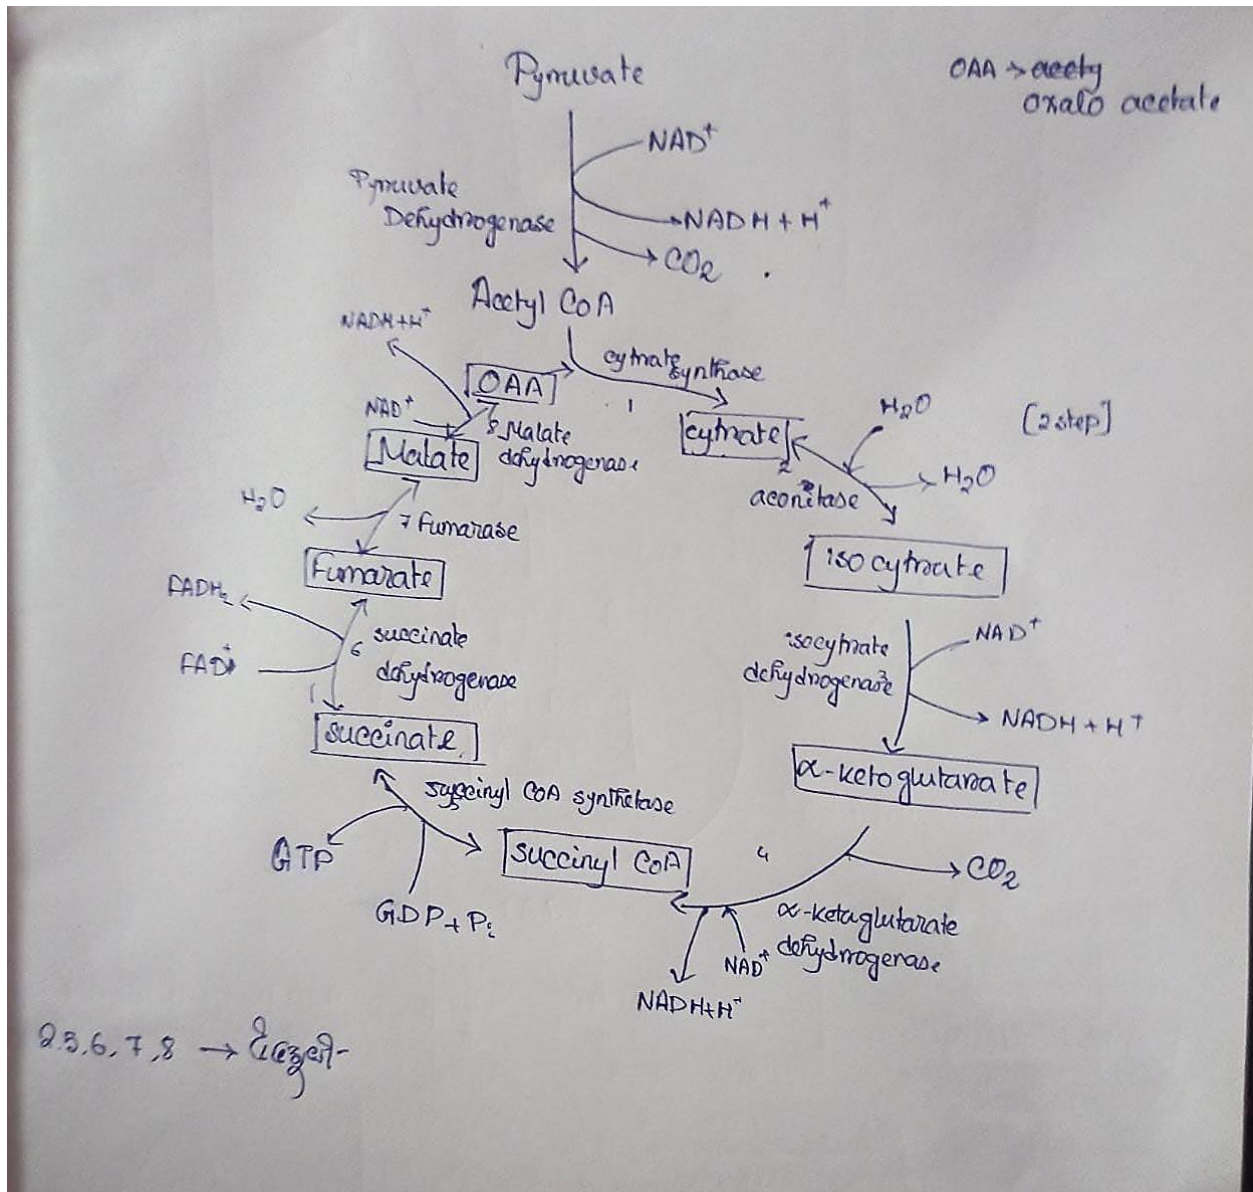 Pyruvate
OAA → acety
oxalo acetate
NAD⁺
Pyruvate
Dehydrogenase
NADH + H⁺
CO₂
Acetyl CoA
NADH+H⁺
OAA
cytrate synthase
1
NAD⁺
8 Malate
dehydrogenase
Malate
cytrate
H₂O
[2 step]
2
aconitase
H₂O
H₂O
7 Fumarase
isocytrate
Fumarate
FADH₂
6 succinate
dehydrogenase
FAD⁺
isocytrate
dehydrogenase
3
NAD⁺
NADH + H⁺
succinate
α-ketoglutarate
succinyl CoA synthetase
5
GTP
GDP + Pi
succinyl CoA
4
CO₂
α-ketaglutarate
dehydrogenase
NAD⁺
NADH+H⁺
2.5,6,7,8 →